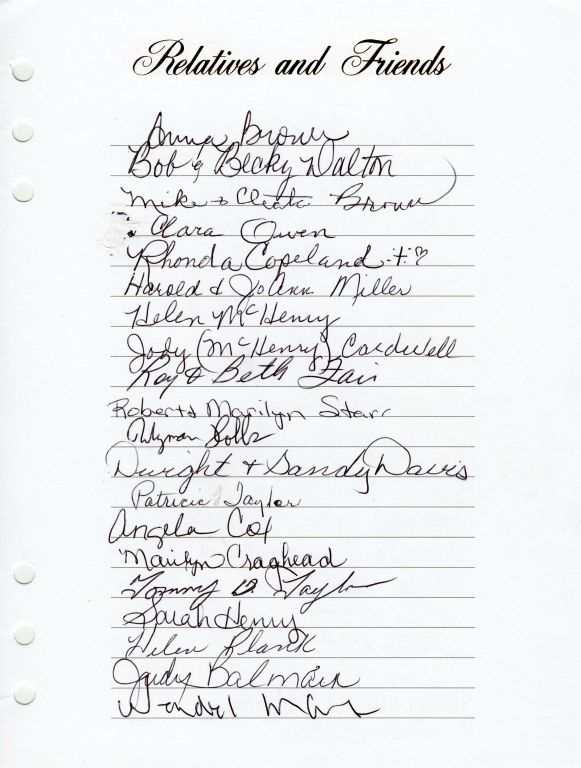 Relatives and Friends
Anna Brown
Bob & Becky Walton
Mike & Brown
Clara Owen
Rhonda Copeland
Harold & JoAnn Miller
Helen McHenry
Jody (McHenry) Cardwell
Roy & Beth Fair
Robert & Marilyn Starr
Dwight + Sandy Davis
Patricia Taylor
Angela Cox
Marilyn Craghead
Tommy D. Taylor
Sarah Henry
Helen Plank
Judy Balmain
Wendel